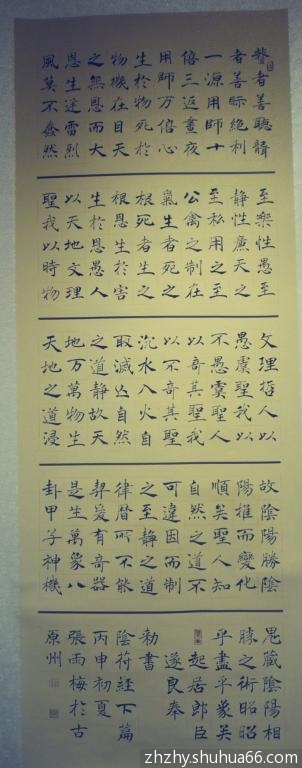 瞽者善聽聾
者善眎絕利
一源用師十
倍三返晝夜
用師万倍心
生於物死於
物機在目天
之無恩而大
恩生迅雷烈
風莫不蠢然
至樂性愚至
静性廉天之
至私用之至
公禽之制在
氣生者死之
根死者生之
根恩生於害
生於恩愚人
以天地文理
聖我以時物
文理哲人以
愚虞聖我以
不愚虞聖人
以奇其聖我
以不奇其聖
沉水入火自
取滅亡自然
之道静故天
地万萬物生
天地之道浸
故陰陽勝陰
陽推而變化
順矣聖人知
自然之道不
可違因而制
之至静之道
律曆所不能
契爰有奇器
是生萬象八
卦甲子神機
鬼藏陰陽相
勝之術昭昭
乎盡乎象矣
起居郎臣
遂良奉
勅書
陰符經下篇
丙申初夏
張雨梅於古
原州
zhzhy.shuhua66.com